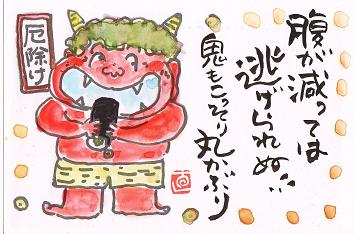 腹が減っては
逃げられぬ…
鬼もこっそり丸かぶり
厄除け